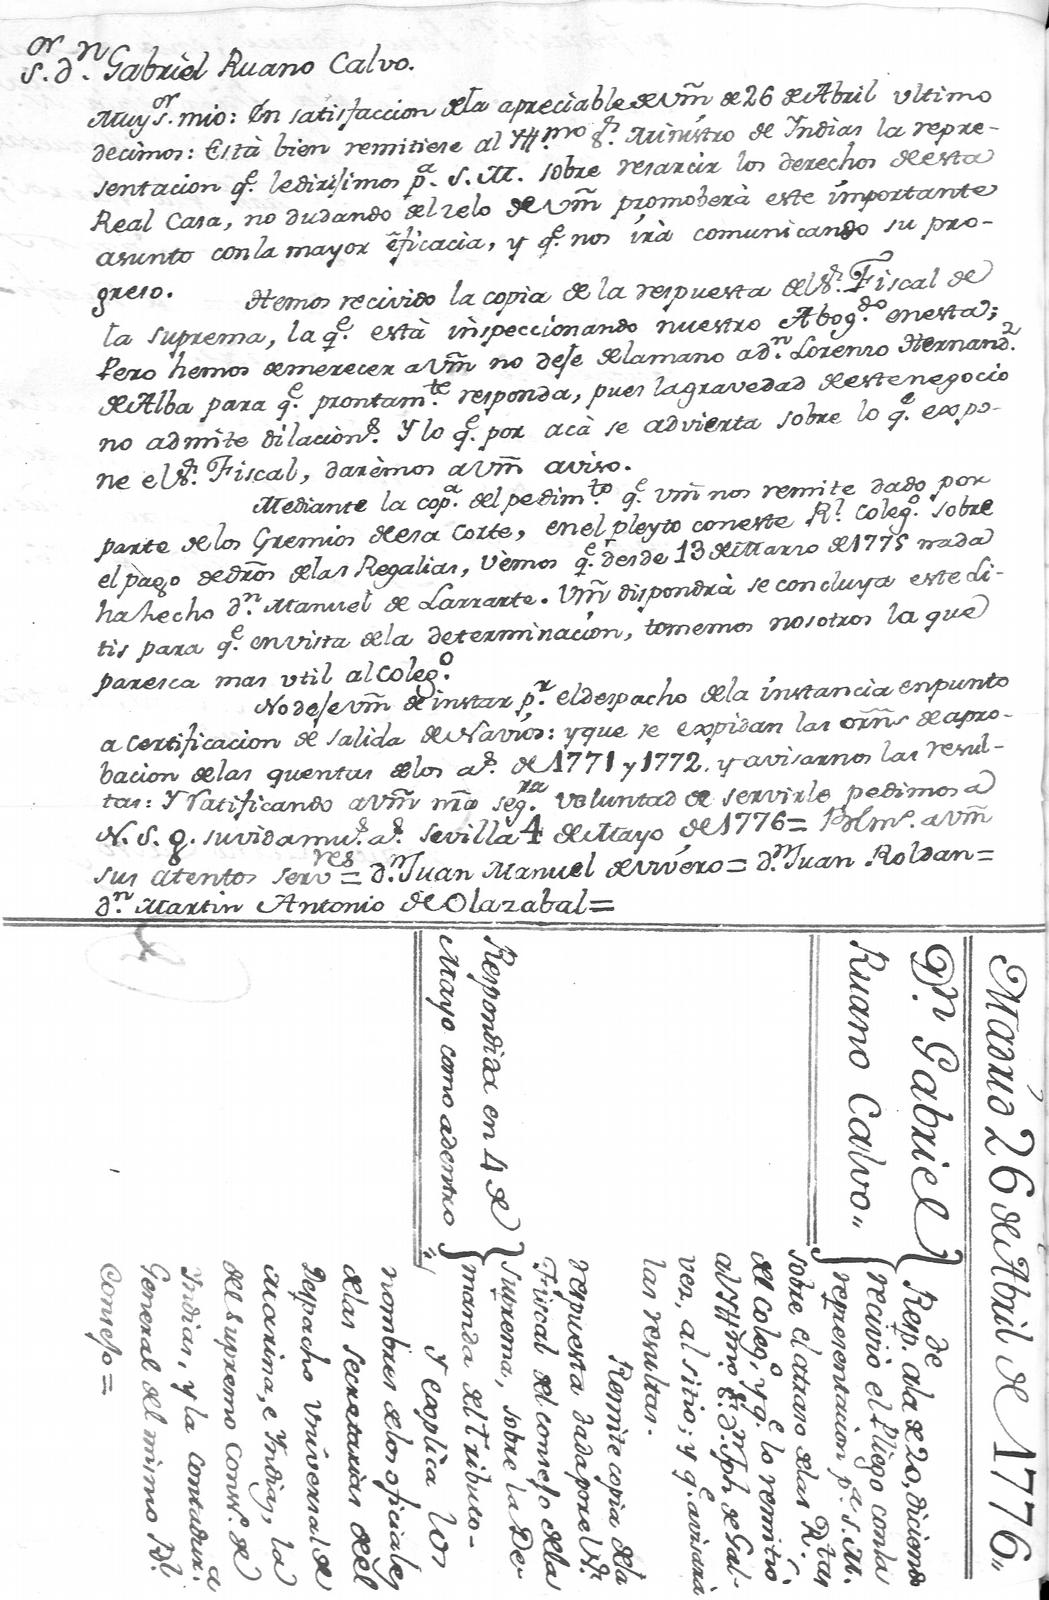 S.or D.n Gabriel Ruano Calvo.
Muy S.or mio: En satisfaccion dela apreciable de Vm̃ de 26 de Abril ultimo
decimos: Está bien remitiese al Yll.mo S.r Ministro de Indias la repre-
sentacion q.e le dirijimos p.a S. M. sobre resarcir los derechos de esta
Real Casa, no dudando del zelo de Vm̃ promoberà este importante
asunto con la mayor eficacia, y q.e nos irà comunicando su pro-
greso.
Hemos recivido la copia de la respuesta del S.r Fiscal de
la suprema, la q.e està inspeccionando nuestro Abog.do en esta;
Pero hemos de merecer a Vm̃ no deje dela mano a d.n Lorenzo Hernand.z
de Alba para q.e prontam.te responda, pues la gravedad de este negocio
no admite dilacion.s Y lo q.e por acà se advierta sobre lo q.e expo-
ne el S.r Fiscal, darèmos a Vm̃ aviso.
Mediante la cop.a del pedim.to q.e Vm̃ nos remite dado por
parte de los Gremios de esa Corte, en el pleyto con este R.l Coleg.o sobre
el pago de dr̃os de las Regalias, Vemos q.e desde 13 de Marzo de 1775 nada
ha hecho d.n Manuel de Larrarte. Vm̃ dispondrà se concluya este Li-
tis para q.e en vista de la determinacion, tomemos nosotros la que
paresca mas util al Coleg.o
No deje Vm̃ de instar p.r el despacho de la instancia en punto
a certificacion de salida de Navios: y que se expidan las orñs de apro-
bacion de las quentas de los a.s de 1771 y 1772, y avisarnos las resul-
tas: Y ratificando a Vm̃ nr̃a seg.ra voluntad de servirle pedimos a
N. S. g. su vida mu.s a.s Sevilla 4 de Mayo de 1776 = B.l m.o a Vm̃
sus atentos serv.res = d.n Juan Manuel de Vivero = d.n Juan Roldan =
d.n Martin Antonio de Olazabal =
Madrid 26 de Abril de 1776"
D.n Gabriel
Ruano Calvo"
Resp.de a la de 20, diciendo
recivió el Pliego con la
representacion p.a S. M.
sobre el atraso de las R.tas
del Coleg.o, y q.e lo remitió
al Yll.mo S.r d.n Jph. de Gal-
vez, al sitio; y q.e avisará
las resultas.
Remite copia de la
respuesta dada por el S.r
Fiscal del Consejo de la
suprema, sobre la De-
manda del tributo.
Y explica los
nombres de los oficiales
de las secretarias del
Despacho Universal de
Marina, e Yndias, la
del supremo Cons.o de
Yndias, y la contadur.a
General del mismo R.l
Consejo =
Respondida en 4 de
Mayo como adentro"